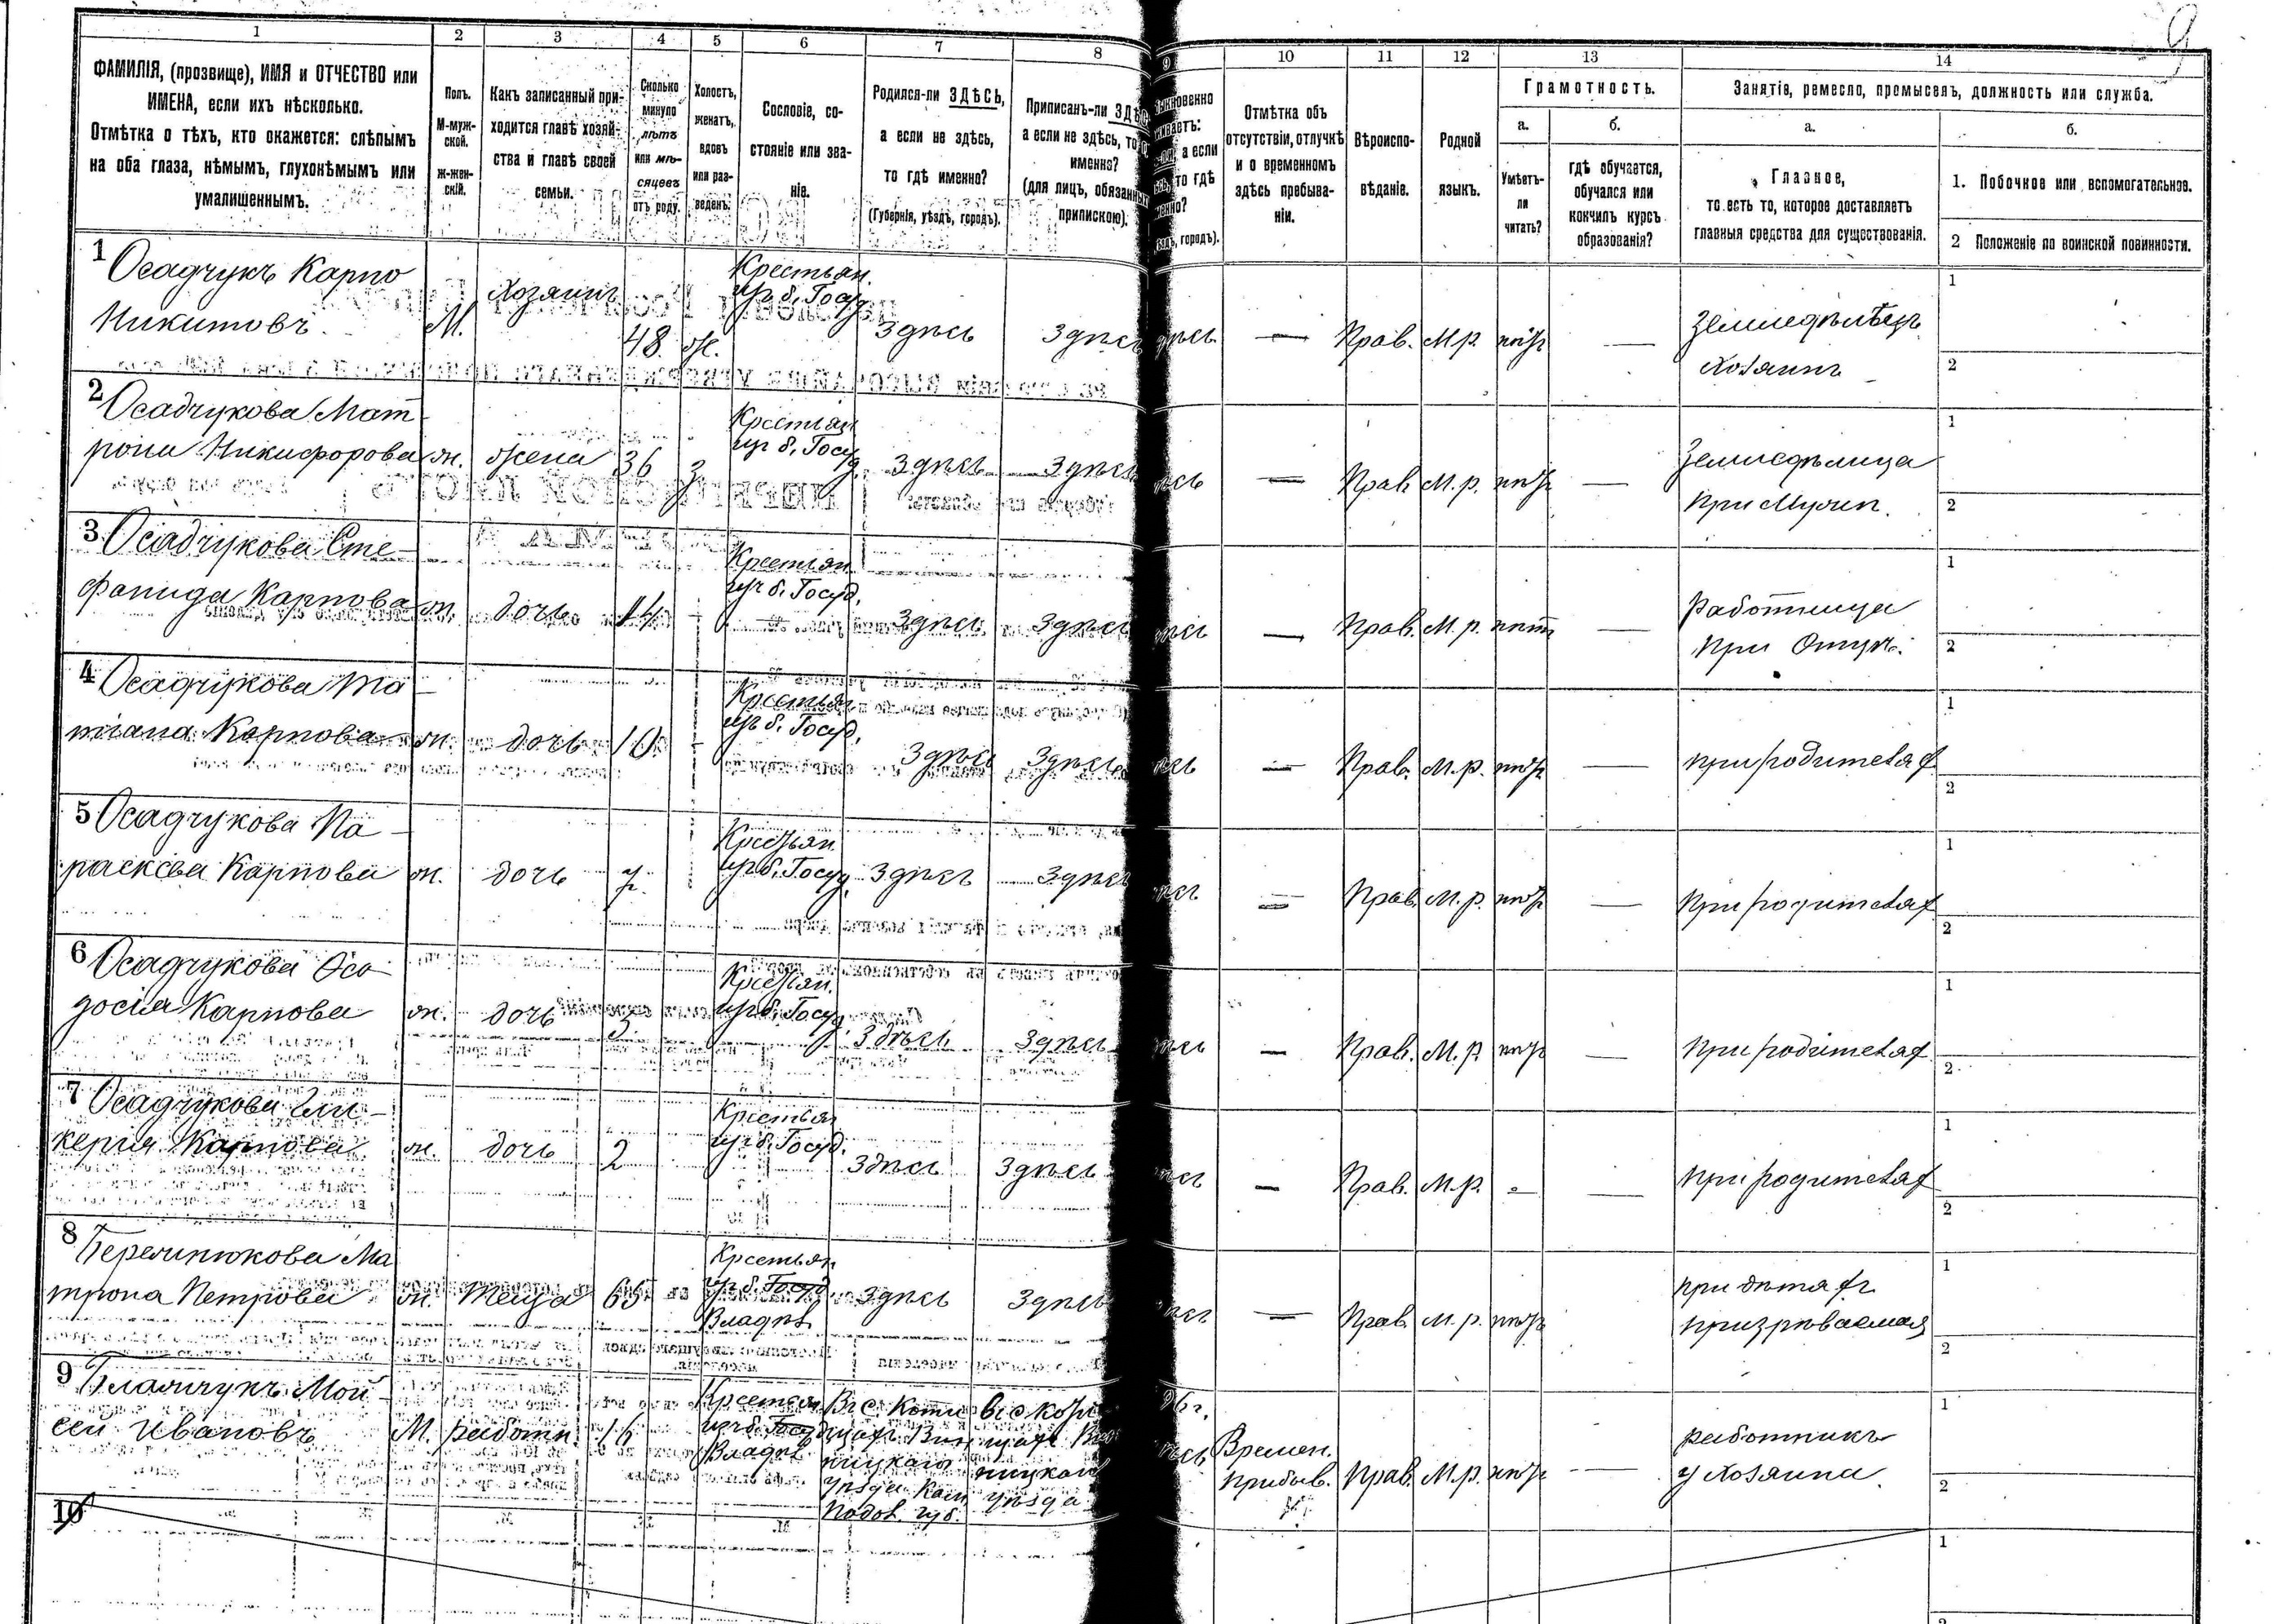 9
1 2 3 4 5 6 7 8 9 10 11 12 13 14
ФАМИЛІЯ, (прозвище), ИМЯ и ОТЧЕСТВО или
ИМЕНА, если ихъ нѣсколько.
Отмѣтка о тѣхъ, кто окажется: слѣпымъ
на оба глаза, нѣмымъ, глухонѣмымъ или
умалишеннымъ.
Полъ.
М-муж-
ской.
ж-жен-
скій.
Какъ записанный при-
ходится главѣ хозяй-
ства и главѣ своей
семьи.
Сколько
минуло
лѣтъ
или мѣ-
сяцевъ
отъ роду.
Холостъ,
женатъ,
вдовъ
или раз-
веденъ.
Сословіе, со-
стояніе или зва-
ніе.
Родился-ли ЗДѢСЬ,
а если не здѣсь,
то гдѣ именно?
(Губернія, уѣздъ, городъ).
Приписанъ-ли ЗДѢС
а если не здѣсь, то
именно?
(для лицъ, обязанных
припискою).
а если
то гдѣ
городъ).
Отмѣтка объ
отсутствіи, отлучкѣ
и о временномъ
здѣсь пребыва-
ніи.
Вѣроиспо-
вѣданіе.
Родной
языкъ.
Грамотность.
а.
Умѣетъ-
ли
читать?
б.
гдѣ обучается,
обучался или
кончилъ курсъ
образованія?
Занятіе, ремесло, промыселъ, должность или служба.
а.
Главное,
то есть то, которое доставляетъ
главныя средства для существованія.
б.
1. Побочное или вспомогательное.
2 Положеніе по воинской повинности.
1 Осадчукъ Карпо
Никитовъ
М.
Хозяинъ
48. ж.
Крестьян.
изъ б. Госуд.
Здѣсь Здѣсь
— Прав. М.р. нѣтъ —
Земледѣлецъ
Хозяинъ
1
2
2 Осадчукова Мат-
рона Никифорова ж. жена 36 з.
Крестьян
изъ б. Госуд. Здѣсь Здѣсь
— Прав. М.р. нѣтъ —
Земледѣлица
при Мужѣ.
1
2
3 Осадчукова Сте-
фанида Карпова ж. дочь 14
Крестьян
изъ б. Госуд.
Здѣсь Здѣсь
— Прав. М.р. нѣт —
Работница
при Отцѣ.
1
2
4 Осадчукова Та-
тіана Карпова ж. дочь 10
Крестьян
изъ б. Госуд.
Здѣсь Здѣсь
— Прав. М.р. нѣтъ —
при родителях
1
2
5 Осадчукова Па-
раскева Карпова ж. дочь
Крестьян
изъ б. Госуд. Здѣсь Здѣсь
— Прав. М.р. нѣтъ —
при родителях
1
2
6 Осадчукова Фео-
досія Карпова ж. дочь
Крестьян.
изъ б. Госуд.
Здѣсь Здѣсь
— Прав. М.р. нѣтъ —
при родителях
1
2
7 Осадчукова Гли-
керія Карпова ж. дочь 2
Крестьян
изъ б. Госуд.
Здѣсь Здѣсь
— Прав. М.р. — —
при родителях
1
2
8 Ма
трона Петрова ж. теща 65
Крестьян
изъ б. Госуд
Владѣл.
Здѣсь Здѣсь
— Прав. М.р. нѣтъ
при дѣтяхъ
призрѣваемая
1
2
9 Мой-
сей Ивановъ М. работн. 16
Крестьян
изъ б. Госуд
Владѣл.
Вин
ницкаго
уѣзда Кам
Подол. губ.
ницкаго
уѣзда
Времен.
прибыв. Прав. М.р. нѣтъ —
работникъ
у Хозяина
1
2
10
1
2